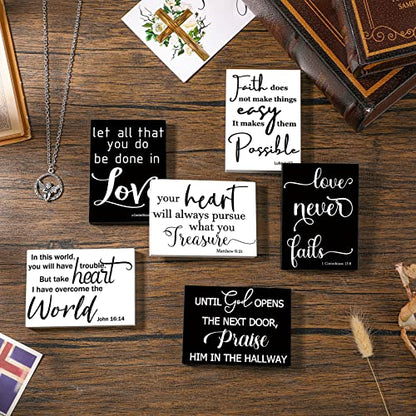 Faith does
not make things
easy
It makes them
Possible
let all that
you do
be done in
Love
love
never
fails
1 Corinthians 13:8
your heart
will always pursue
what you
Treasure
Matthew 6:21
In this world,
you will have trouble.
But take heart
I have overcome the
World
John 16:14
UNTIL God OPENS
THE NEXT DOOR,
Praise
HIM IN THE HALLWAY